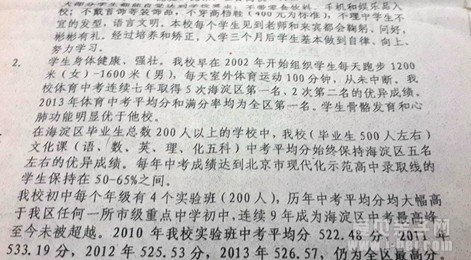 入校。不带零食饮料、手机和娱乐品入
校；不戴首饰等装饰品，不穿高档鞋（400元为标准），不理中学生不
宜的发型，语言文明。本校每个学生见到老师和来宾都会鞠躬、问好，
彬彬有礼。经过培养和矫正，入学三个月后学生基本做到自律、向上、
努力学习。
2. 学生身体健康、强壮。我校早在2002年开始组织学生每天跑步1200
米（女）-1600米（男），每天室外体育运动100分钟，从未中断。我
校体育中考连续七年取得5次海淀区第一名、2次第二名的优异成绩。
2013年体育中考平均分和满分率均为全区第一名。学生骨骼发育和心
肺功能明显优于他校。
在海淀区毕业生总数200人以上的学校中，我校（毕业生500人左右）
文化课（语、数、英、理、化五科）中考平均分始终保持海淀区五名
左右的优异成绩。每年中考成绩达到北京市现代化示范高中录取线的
学生保持在50-65%之间。
我校初中每个年级有4个实验班（200人），历年中考平均分均大幅高
于我区任何一所市级重点中学初中，连续9年成为海淀区中考最高峰
至今未被超越。2010年我校实验班中考平均分522.48分，2011年
533.19分，2012年525.53分，2013年526.57，仍为全区最高分。